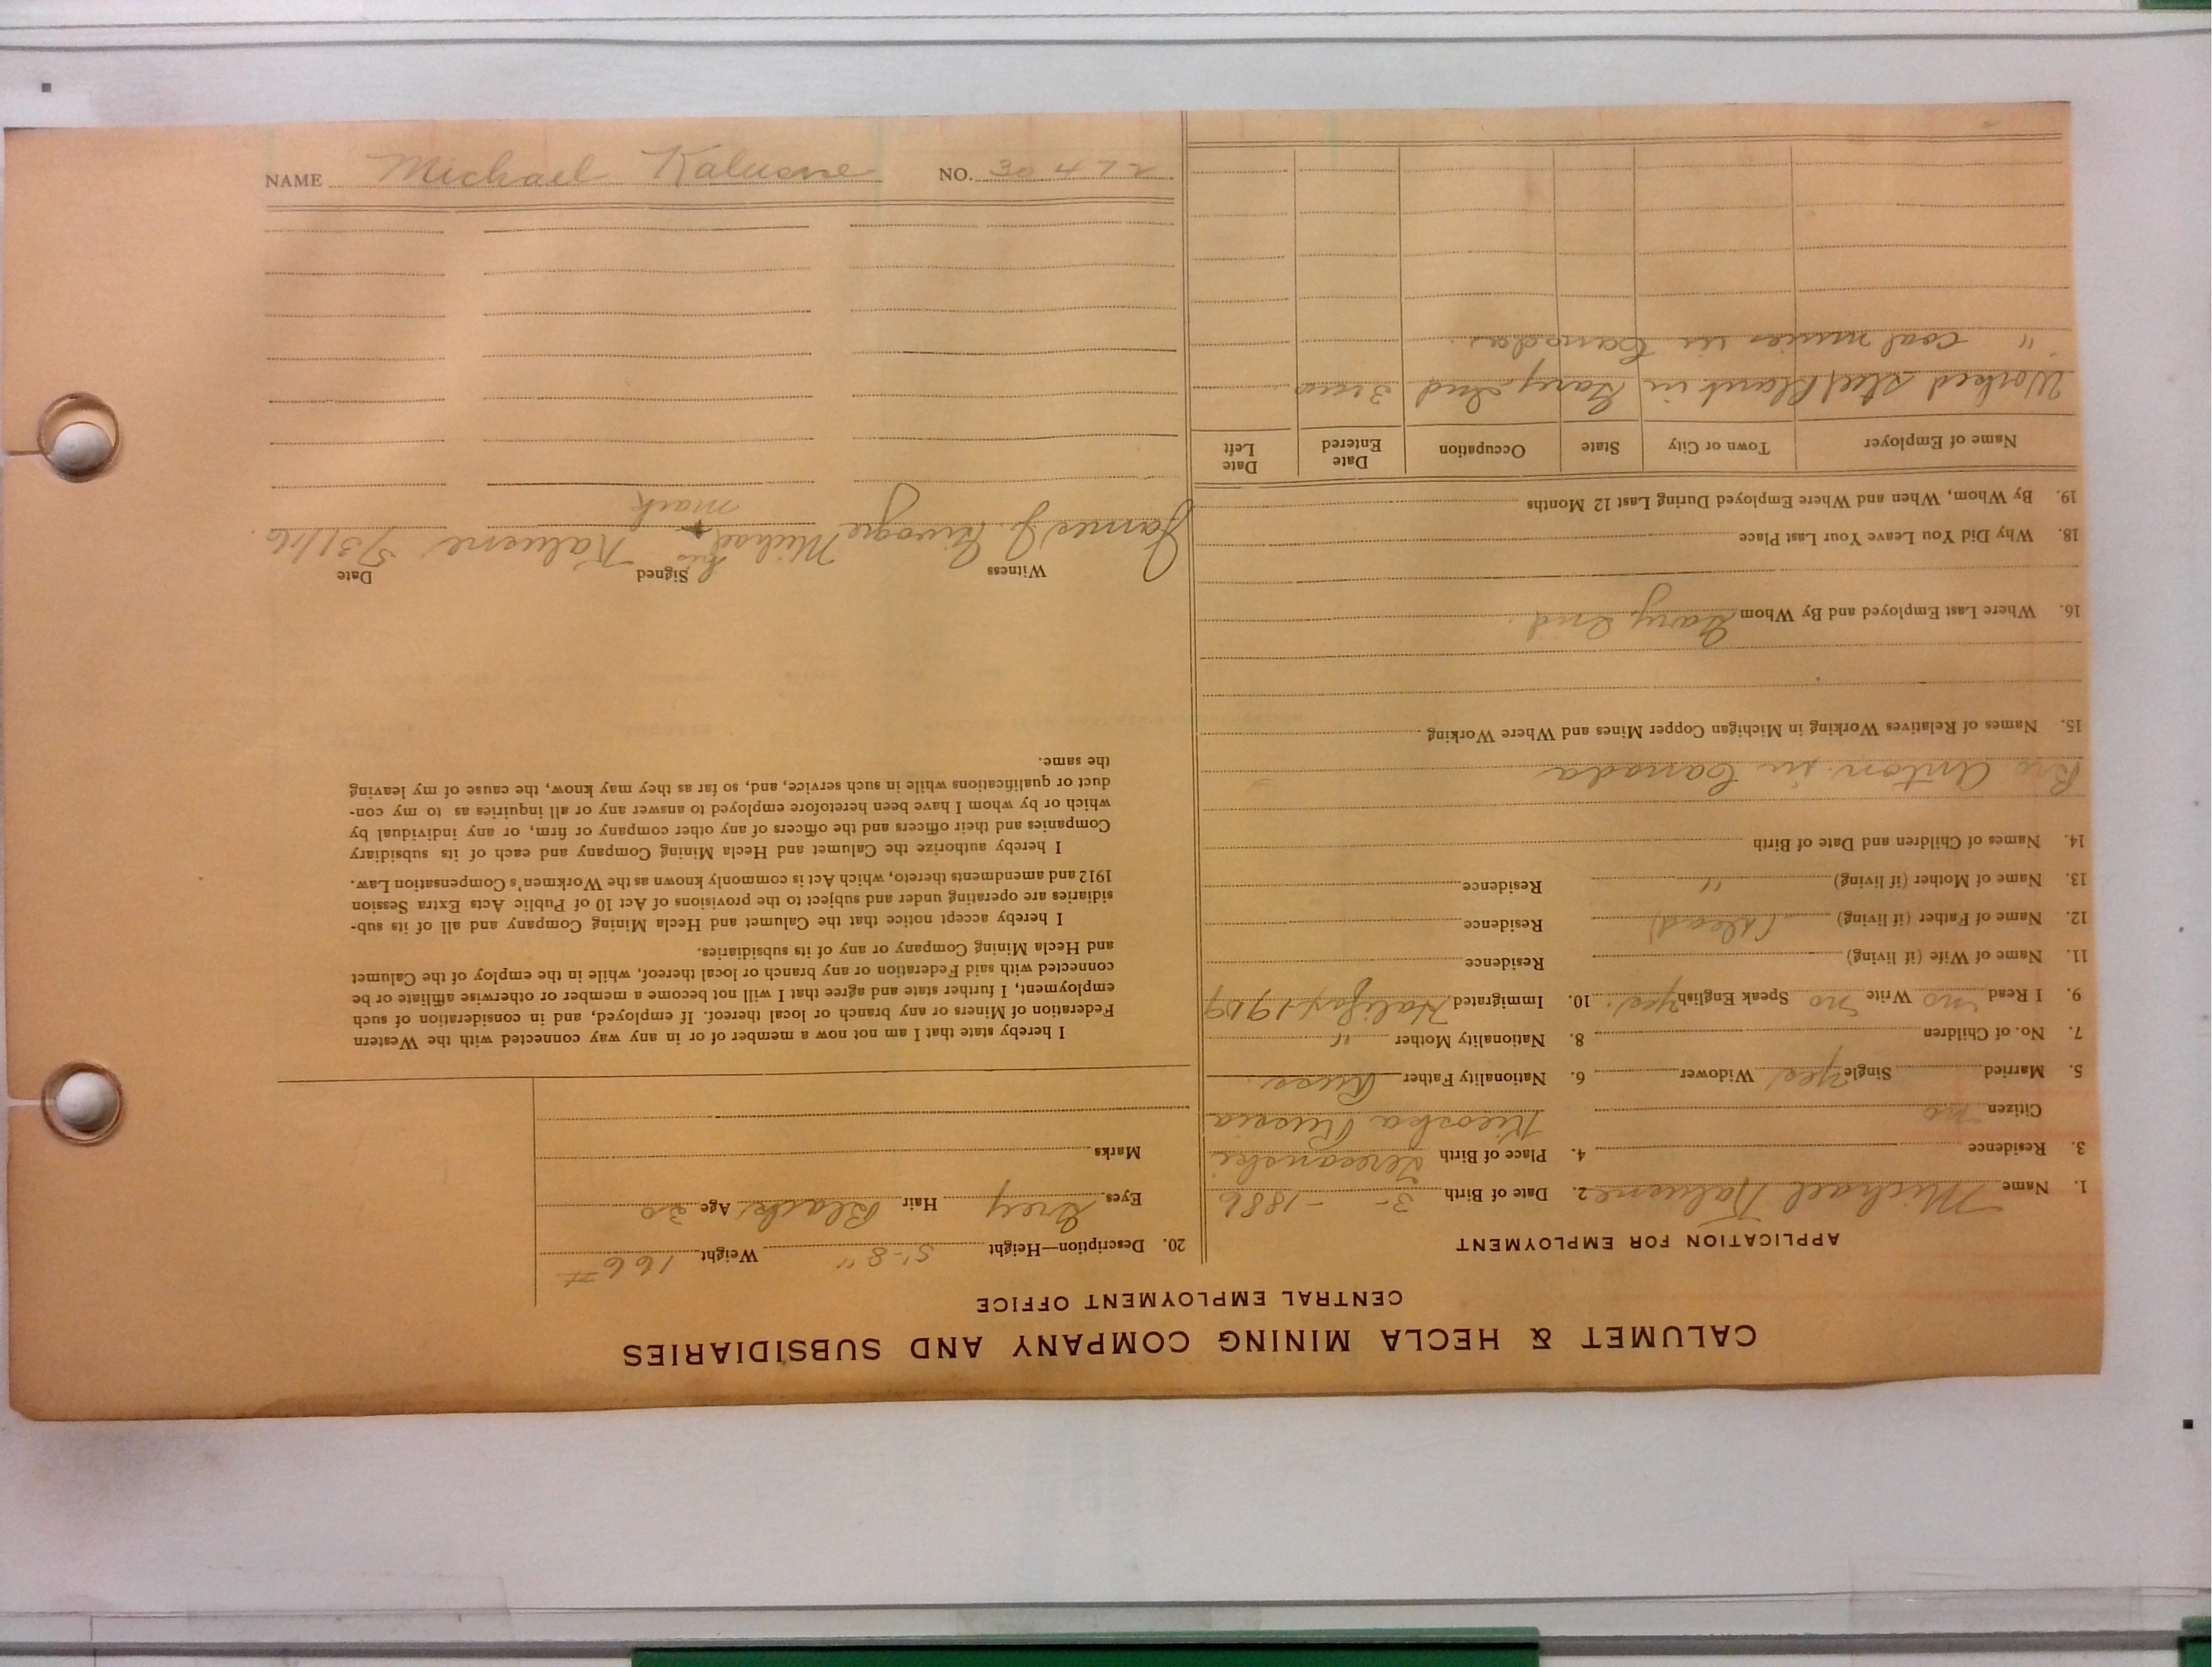 CALUMET & HECLA MINING COMPANY AND SUBSIDIARIES
CENTRAL EMPLOYMENT OFFICE
APPLICATION FOR EMPLOYMENT
1. Name Michael Kalusne 2. Date of Birth 3- -1886
3. Residence 4. Place of Birth
Citizen no Russia
5. Married Single yes Widower 6. Nationality Father Russ.
7. No. of Children 8. Nationality Mother "
9. I Read no Write no Speak English yes. 10. Immigrated Halifax 1909
11. Name of Wife (if living) Residence
12. Name of Father (if living) (dead) Residence
13. Name of Mother (if living) " Residence
14. Names of Children and Date of Birth
Bro Anton in Canada
15. Names of Relatives Working in Michigan Copper Mines and Where Working
16. Where Last Employed and By Whom Gary Ind.
18. Why Did You Leave Your Last Place
19. By Whom, When and Where Employed During Last 12 Months
Name of Employer Town or City State Occupation Date Entered Date Left
Worked steel plant in Gary Ind 3 mos
" coal mines in Canada.
20. Description—Height 5'-8" Weight 166#
Eyes Grey Hair Black Age 30
Marks
I hereby state that I am not now a member of or in any way connected with the Western
Federation of Miners or any branch or local thereof. If employed, and in consideration of such
employment, I further state and agree that I will not become a member or otherwise affiliate or be
connected with said Federation or any branch or local thereof, while in the employ of the Calumet
and Hecla Mining Company or any of its subsidiaries.
I hereby accept notice that the Calumet and Hecla Mining Company and all of its sub-
sidiaries are operating under and subject to the provisions of Act 10 of Public Acts Extra Session
1912 and amendments thereto, which Act is commonly known as the Workmen's Compensation Law.
I hereby authorize the Calumet and Hecla Mining Company and each of its subsidiary
Companies and their officers and the officers of any other company or firm, or any individual by
which or by whom I have been heretofore employed to answer any or all inquiries as to my con-
duct or qualifications while in such service, and, so far as they may know, the cause of my leaving
the same.
Witness Signed Date
James J. Michael his + mark Kalusne 5/31/16.
NAME Michael Kalusne NO. 30472